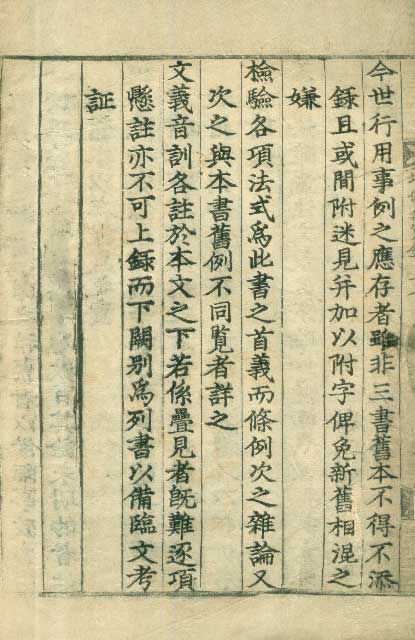 今世行用事例之應存者雖非三書舊本不得不添
錄且或間附迷見幷加以附字俾免新舊相混之
嫌
檢驗各項法式爲此書之首義而條例次之雜論又
次之與本書舊例不同覧者詳之
文義音訓各註於本文之下若係疊見者旣難逐項
懸註亦不可上錄而下闕別爲列書以備臨文考
証